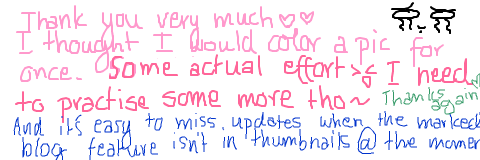 Thank you very much♡♡
I thought I would color a pic for
once. Some actual effort >_< I need
to practise some more tho~ Thanks again
And it's easy to miss updates when the marked
blog feature isn't in thumbnails @ the momen